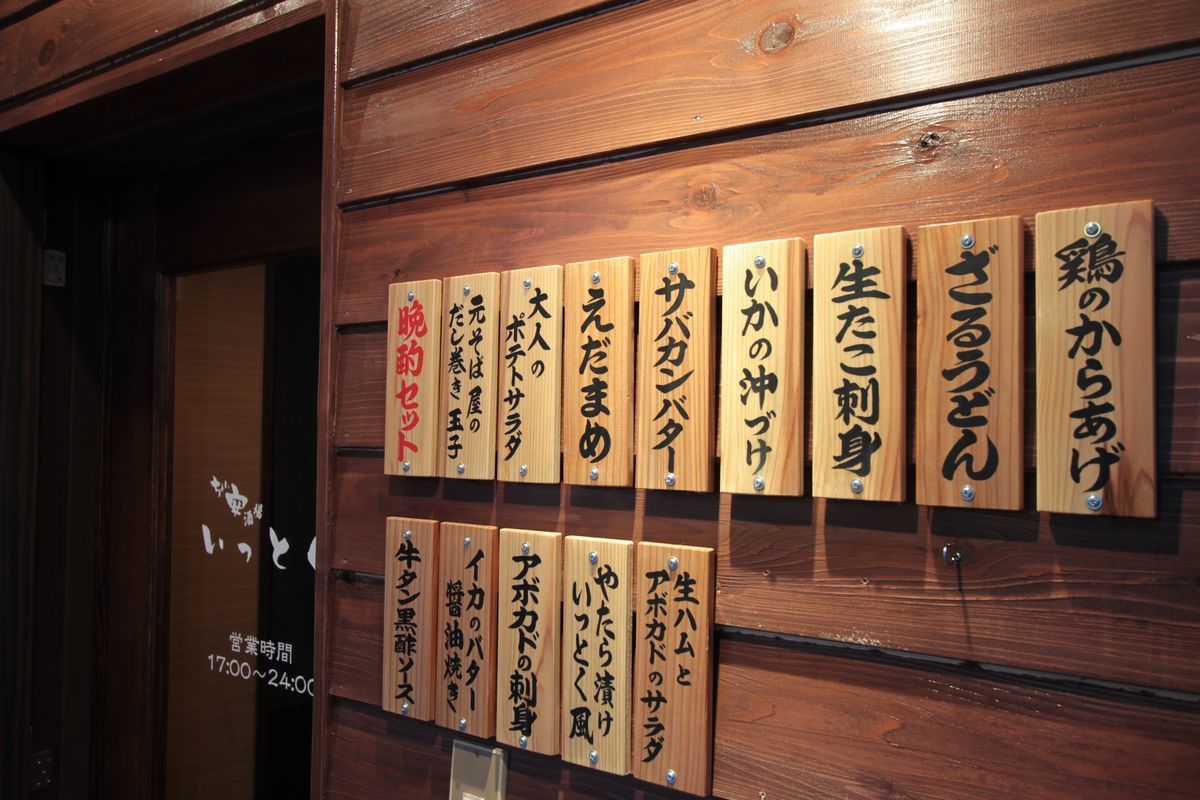 鶏のからあげ
ざるうどん
生たこ刺身
いかの沖づけ
サバカンバター
えだまめ
大人の
ポテトサラダ
元そば屋の
だし巻き玉子
晩酌セット
生ハムと
アボカドのサラダ
やたら漬け
いっとく風
アボカドの刺身
イカのバター
醤油焼き
牛タン黒酢ソース
いっとく
営業時間
17:00〜24:00